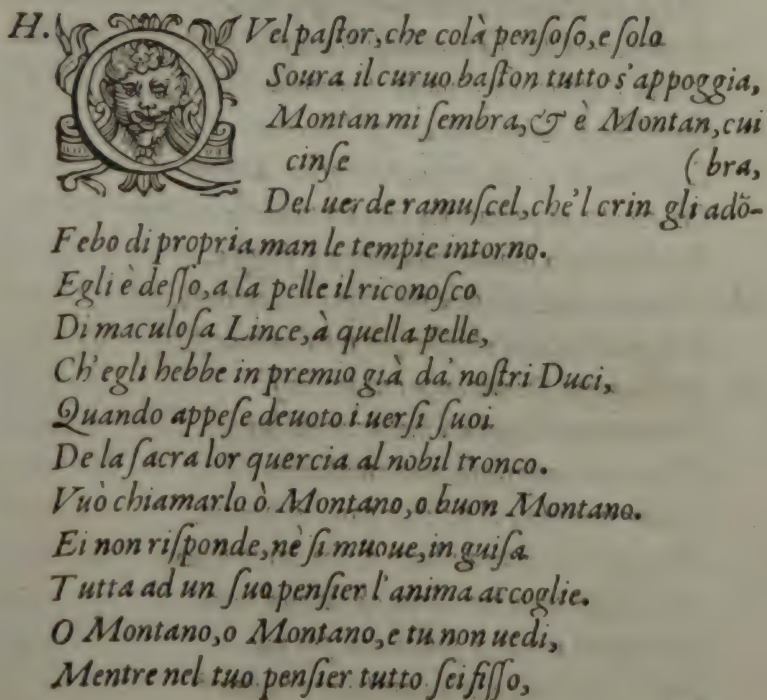 H. QVel paſtor, che colà penſoſo, e ſolo
Soura il curuo baſton tutto s'appoggia,
Montan mi ſembra, & è Montan, cui
cinſe (bra,
Del uerde ramuſcel, che'l crin gli adõ-
Febo di propria man le tempie intorno.
Egli è deſſo, a la pelle il riconoſco
Di maculoſa Lince, à quella pelle,
Ch'egli hebbe in premio già da' noſtri Duci,
Quando appeſe deuoto i uerſi ſuoi
De la ſacra lor quercia al nobil tronco.
Vuò chiamarlo ò Montano, o buon Montano.
Ei non riſponde, nè ſi muoue, in guiſa
Tutta ad un ſuo penſier l'anima accoglie.
O Montano, o Montano, e tu non uedi,
Mentre nel tuo penſier tutto ſei fiſſo,